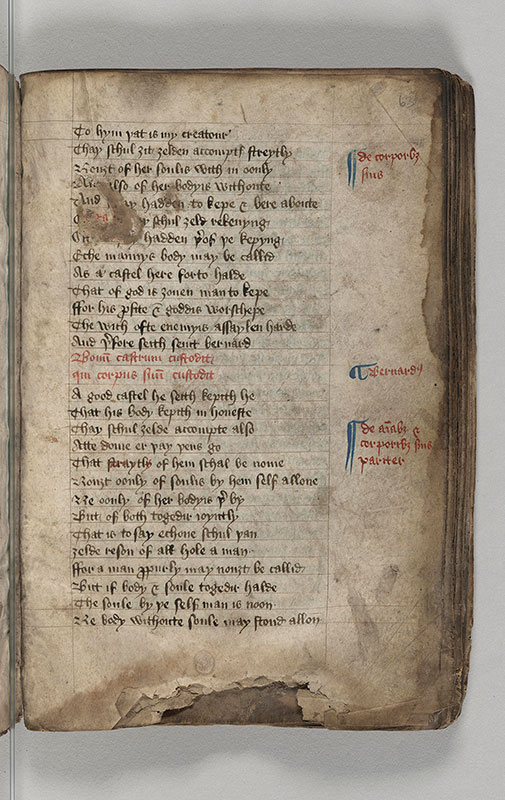 To hym yat is my creatour
Thay schul zit zelden accompt streytly
Nouzt of her soulis with in oonly
also of her bodyis withoute
And hadden to kepe & bere aboute
schul zeld rekenyng
hadden yof ye kepyng
Eche mannys body may be callid
As a castel here forto halde
That of god is zouen man to kepe
ffor his profite & goddis worschepe
The wich ofte enemyis assaylen harde
And yfore seith seint bernard
Bonum castrum custodit
qui corpus suum custodit
A good castel he seith kepith he
That his body kepith in honeste
Thay schul zelde accompte also
Atte dome er yay yens go
That straytly of hem schal be nome
Nouzt oonly of soulis by hem self allone
Ne oonly of her bodyis y by
But of both togedir ioyntly
That is to say echone schul yan
zelde reson of all hole a man
ffor a man propurly may nouzt be callid
But if body & soule togedir halde
The soule by ye self man is noon
Ne body withoute soule may stond allon
de corporibz
suis
Bernardus
de aiabz &
corporibz suis
pariter